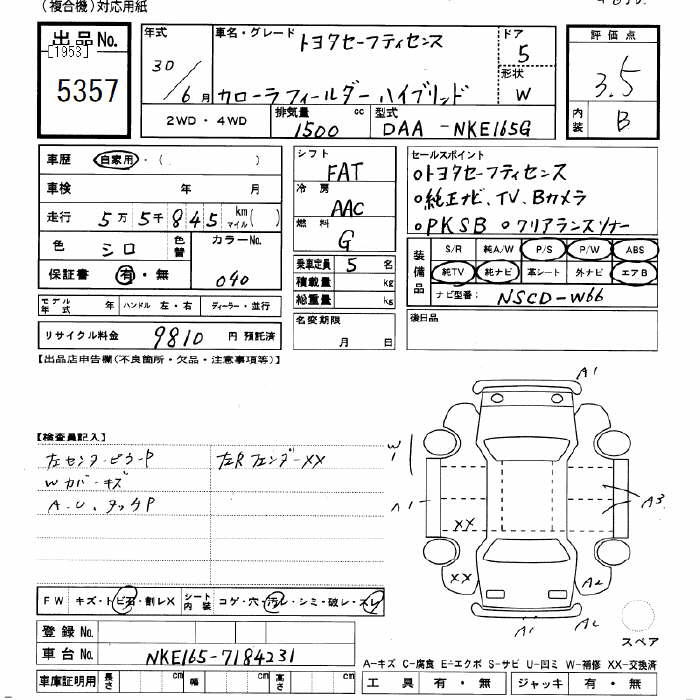 (複合機)対応用紙
出品 No.
[1953]
5357
年式
30/6月
車名・グレード トヨタセーフティセンス
カローラフィールダーハイブリッド
ドア 5
形状 W
評価点
3.5
内装 B
2WD・4WD
排気量 1500 cc
型式 DAA-NKE165G
車歴 自家用・( )
車検 年 月
走行 5万5千845 km マイル( )
色 シロ 色替
カラーNo. 040
保証書 有・無
モデル年式 年 ハンドル 左・右 ディーラー・並行
リサイクル料金 9810 円 預託済
シフト FAT
冷房 AAC
燃料 G
乗車定員 5 名
積載量 kg
総重量 kg
名変期限 月 日
セールスポイント
○トヨタセーフティセンス
○純正ナビ、TV、Bカメラ
○PKSB ○クリアランスソナー
装備品 S/R 純A/W P/S P/W ABS
純TV 純ナビ 革シート 外ナビ エアB
ナビ型番: NSCD-W66
後日品
【出品店申告欄(不良箇所・欠品・注意事項等)】
【検査員記入】
左センターピラーP 左Rフェンダー XX
Wカバーキズ
A.U、タッチP
A1
W1
A1
A3
XX
XX
A2
A1
スペア
FW キズ・トビ石・割レX シート内装 コゲ・穴・汚レ・シミ・破レ・スレ
登録 No.
車台 No. NKE165-7184231
車庫証明用 長さ cm 幅 cm 高さ cm
A-キズ C-腐食 E-エクボ S-サビ U-凹ミ W-補修 XX-交換済
工具 有・無 ジャッキ 有・無